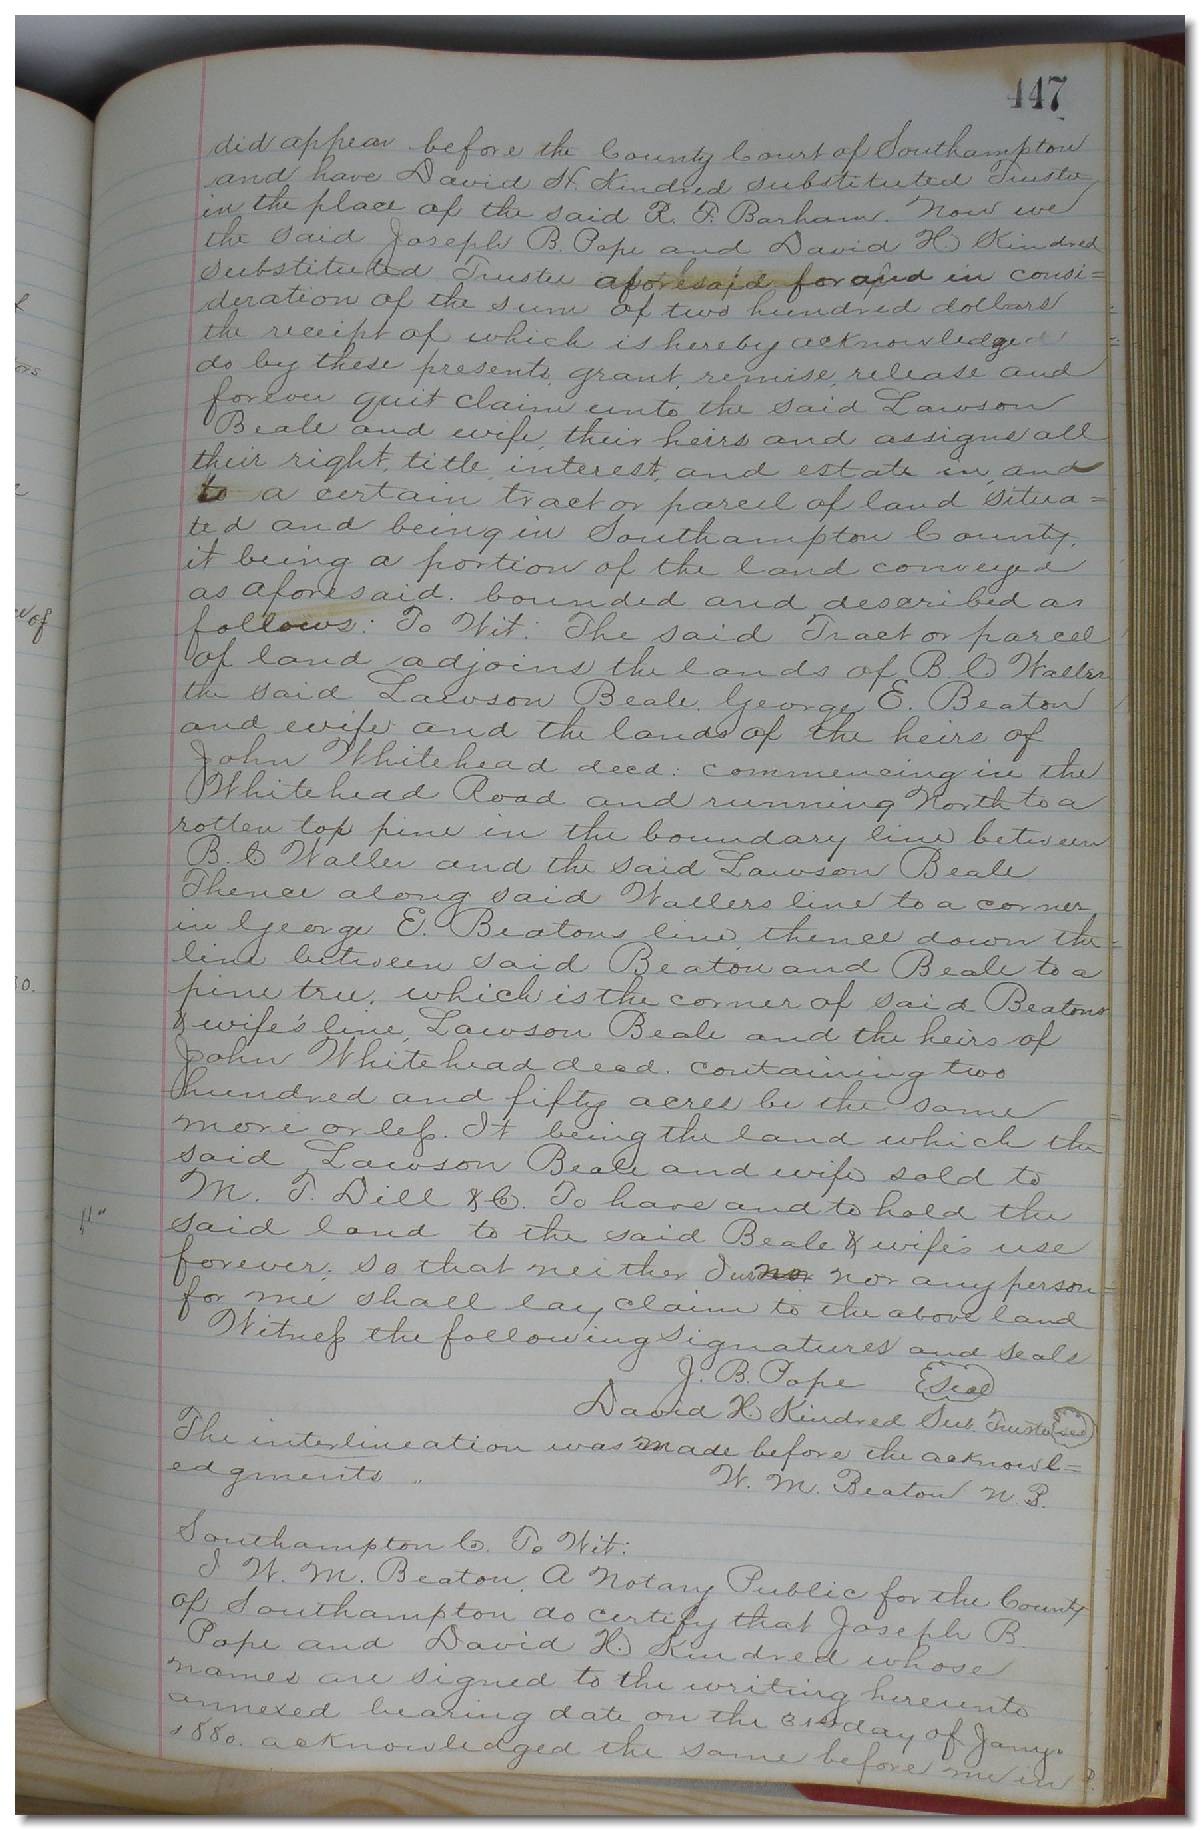 447
did appear before the County Court of Southampton
and have David H. Kindred substituted Trustee
in the place of the said R. F. Barham. Now we
the said Joseph B. Pope and David H. Kindred
substituted Trustee aforesaid for and in consi=
deration of the sum of two hundred dollars
the receipt of which is hereby acknowledged
do by these presents, grant, remise, release and
forever quit claim unto the said Lawson
Beale and wife, their heirs and assigns all
their right, title, interest, and estate in, and
to a certain tract or parcel of land situa=
ted and being in Southampton County.
it being a portion of the land conveyed
as aforesaid. bounded and described as
follows: To Wit: The said Tract or parcel
of land adjoins the lands of B. C Waller
the said Lawson Beale, George E. Beaton
and wife and the lands of the heirs of
John Whitehead deed: commencing in the
Whitehead Road and running North to a
rotten top pine in the boundary line between
B. C Waller and the said Lawson Beale
Thence along said Wallers line to a corner
in George E. Beatons line, thence down the
line between said Beaton and Beale to a
pine tree, which is the corner of said Beatons
& wife's line, Lawson Beale and the heirs of
John Whitehead deed. containing two
hundred and fifty acres be the same
more or less. It being the land which the
said Lawson Beale and wife sold to
M. T. Dill & C. To have and to hold the
said land to the said Beale & wife's use
forever; so that neither I nor any person
for me shall lay claim to the above land
Witness the following signatures and seals
J. B. Pope Seal
David H. Kindred Sub. Trustee Seal
The interlineation was made before the acknowl=
edgments ..
W. M. Beaton N. P.
Southampton Co. To Wit:
I W. M. Beaton, A Notary Public for the County
of Southampton do certify that Joseph B.
Pope and David H. Kindred whose
names are signed to the writing hereunto
annexed bearing date on the 31st day of Jany.
1880. acknowledged the same before me in